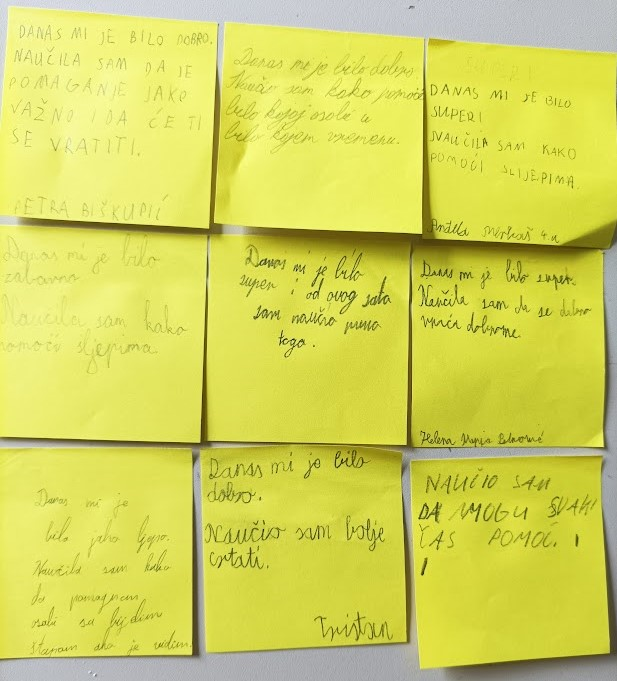 DANAS MI JE BILO DOBRO.
NAUČILA SAM DA JE
POMAGANJE JAKO
VAŽNO I DA ĆE TI
SE VRATITI.
PETRA BIŠKUPIĆ
Danas mi je bilo dobro.
Naučio sam kako pomoći
bilo kojoj osobi u
bilo kojem vremenu.
DANAS MI JE BILO
SUPER!
NAUČILA SAM KAKO
POMOĆI SLIJEPIMA.
4.a
Danas mi je bilo
zabavno
Naučila sam kako
pomoći sljepima
Danas mi je bilo
super i od ovog sata
sam naučio puno
toga.
Danas mi je bilo super.
Naučila sam da se dobro
vraća dobrome.
Helena Marija
Danas mi je
bilo jako ljepo.
Naučila sam kako
da pomognem
osobi sa bijelim
štapom ako je vidim.
Danas mi je bilo
dobro.
Naučio sam bolje
crtati.
Tristan
NAUČIO SAM
DA MOGU SVAKI
ČAS POMOĆ. !
!